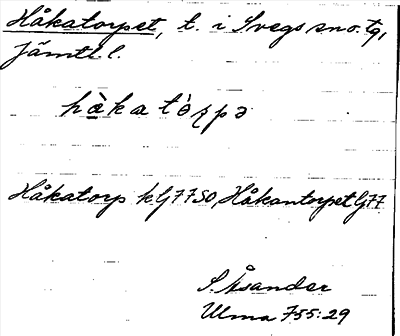 Håkatorpet, t. i Svegs sn o. tg,
Jämtl l.
hàkatòrpə
Håkatorp kG7750, Håkantorpet G77
S. Åsander
Ulma 755:29